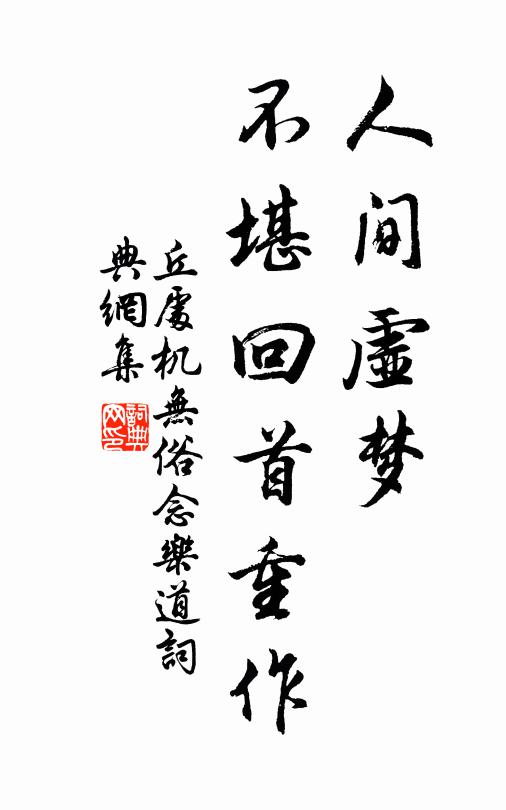 人间虚梦
不堪回首重作
丘處机無俗念樂道詞
典網集
詞典网印